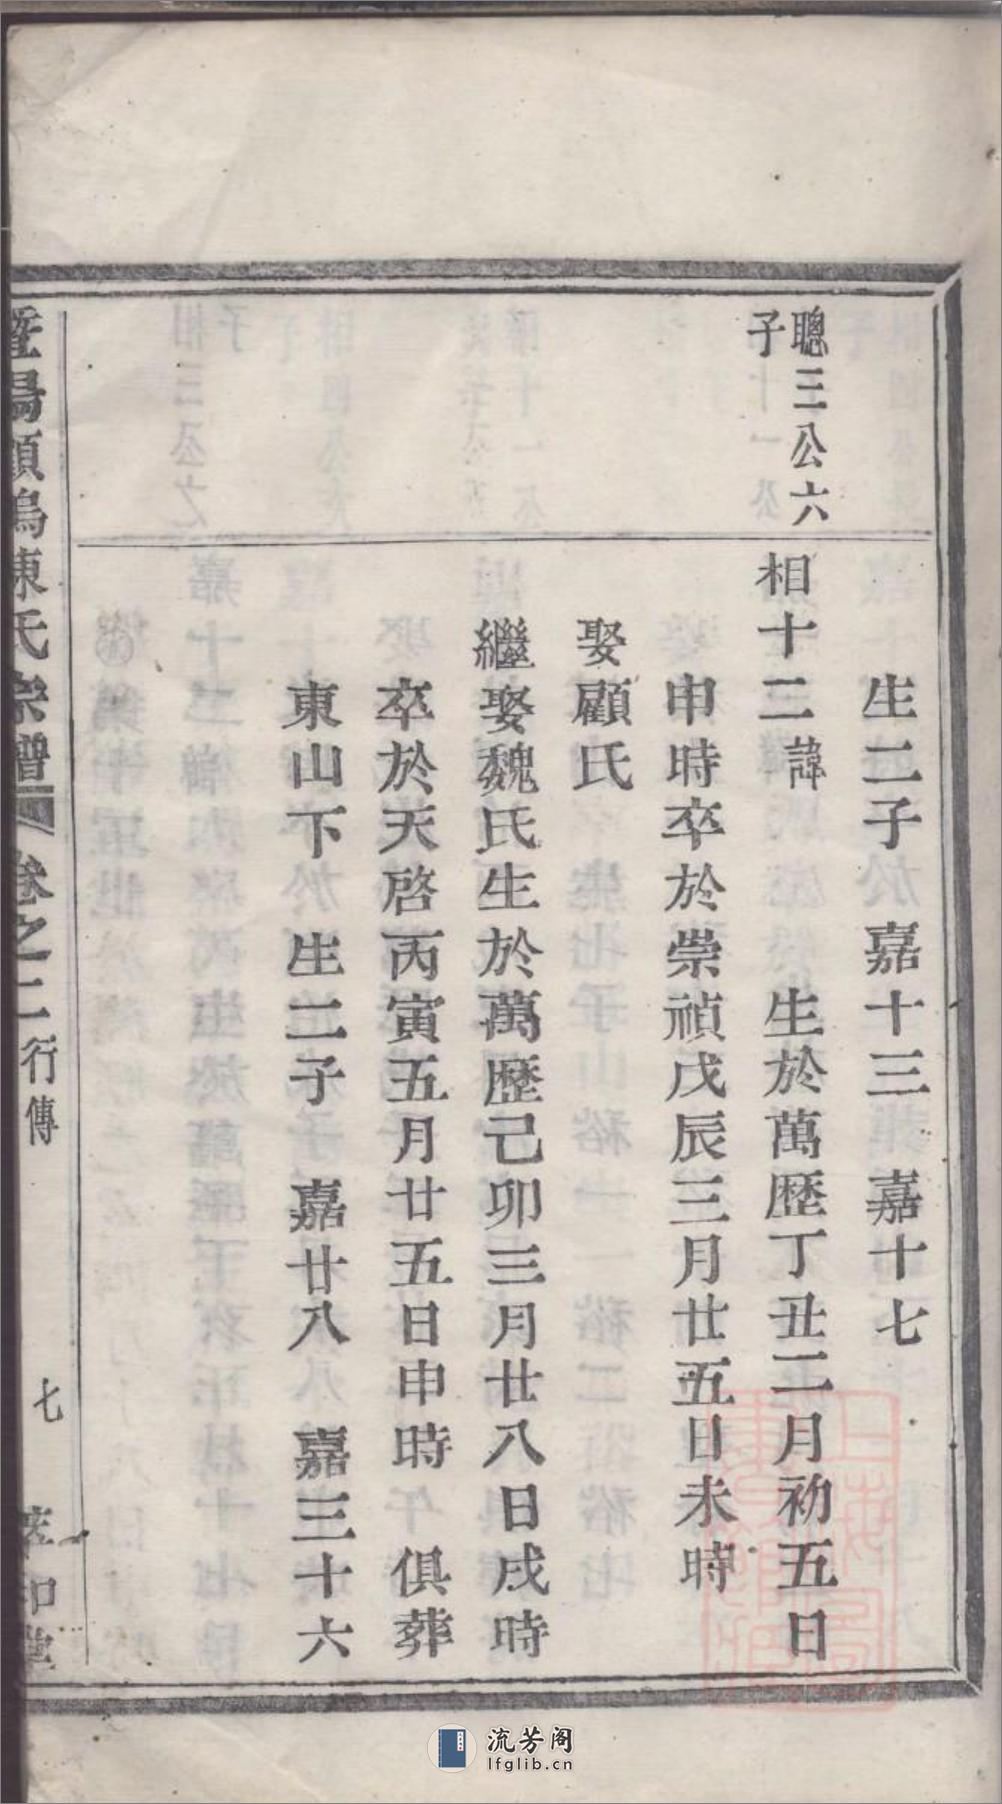 生二子 嘉十三 嘉十七
聰三公六
子
相十二諱 生於萬歷丁丑二月初五日
申時卒於崇禎戊辰三月廿五日未時
娶顧氏
繼娶魏氏生於萬歷己卯三月廿八日戌時
卒於天啓丙寅五月廿五日申時 俱葬
東山下 生二子 嘉廿八 嘉三十六
暨陽顧塢陳氏宗譜 卷之二行傳 七
流芳阁
lfglib.cn